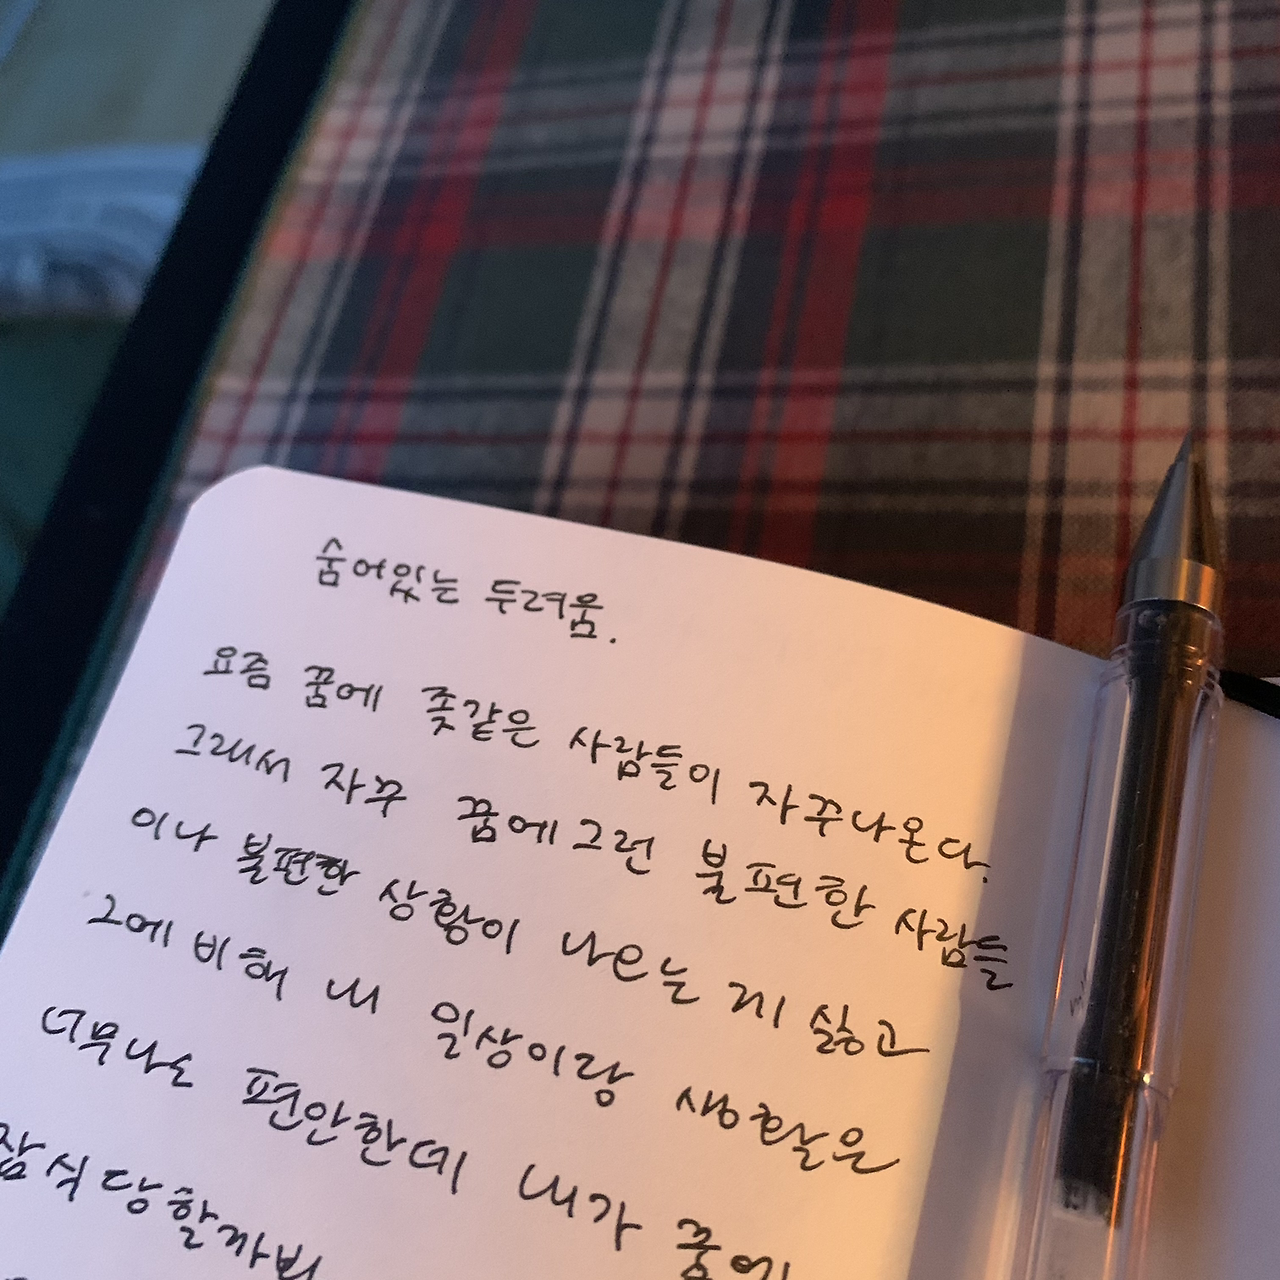 숨어있는 두려움.
요즘 꿈에 좆같은 사람들이 자꾸나온다.
그래서 자꾸 꿈에 그런 불편한 사람들
이나 불편한 상황이 나오는 게 싫고
그에 비해 내 일상이랑 생활은
너무나도 편안한데 내가 꿈에
잠식당할까봐